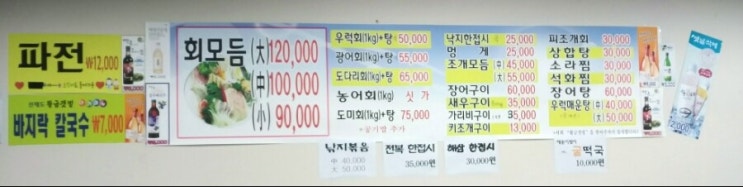 파전 ₩12,000
황금갯벌
바지락 칼국수 ₩7,000
회모듬 (大) 120,000
(中) 100,000
(小) 90,000
우럭회(1kg)+탕 50,000
광어회(1kg)+탕 55,000
도다리회(1kg)+탕 65,000
농어회(1kg)+탕 싯가
도미회(1kg)+탕 75,000
*공기밥 추가
낙지한접시 25,000
멍게 25,000
조개모듬 (中) 45,000
(大) 55,000
장어구이 60,000
새우구이 35,000
가리비구이 35,000
키조개구이 13,000
찌조개회 30,000
상합탕 30,000
소라찜 30,000
석화찜 30,000
장어탕 60,000
우럭매운탕 (中) 40,000
(大) 50,000
낙지볶음
中 40,000
大 50,000
전복 한접시
35,000원
해삼 한접시
30,000원
굴떡국
10,000원